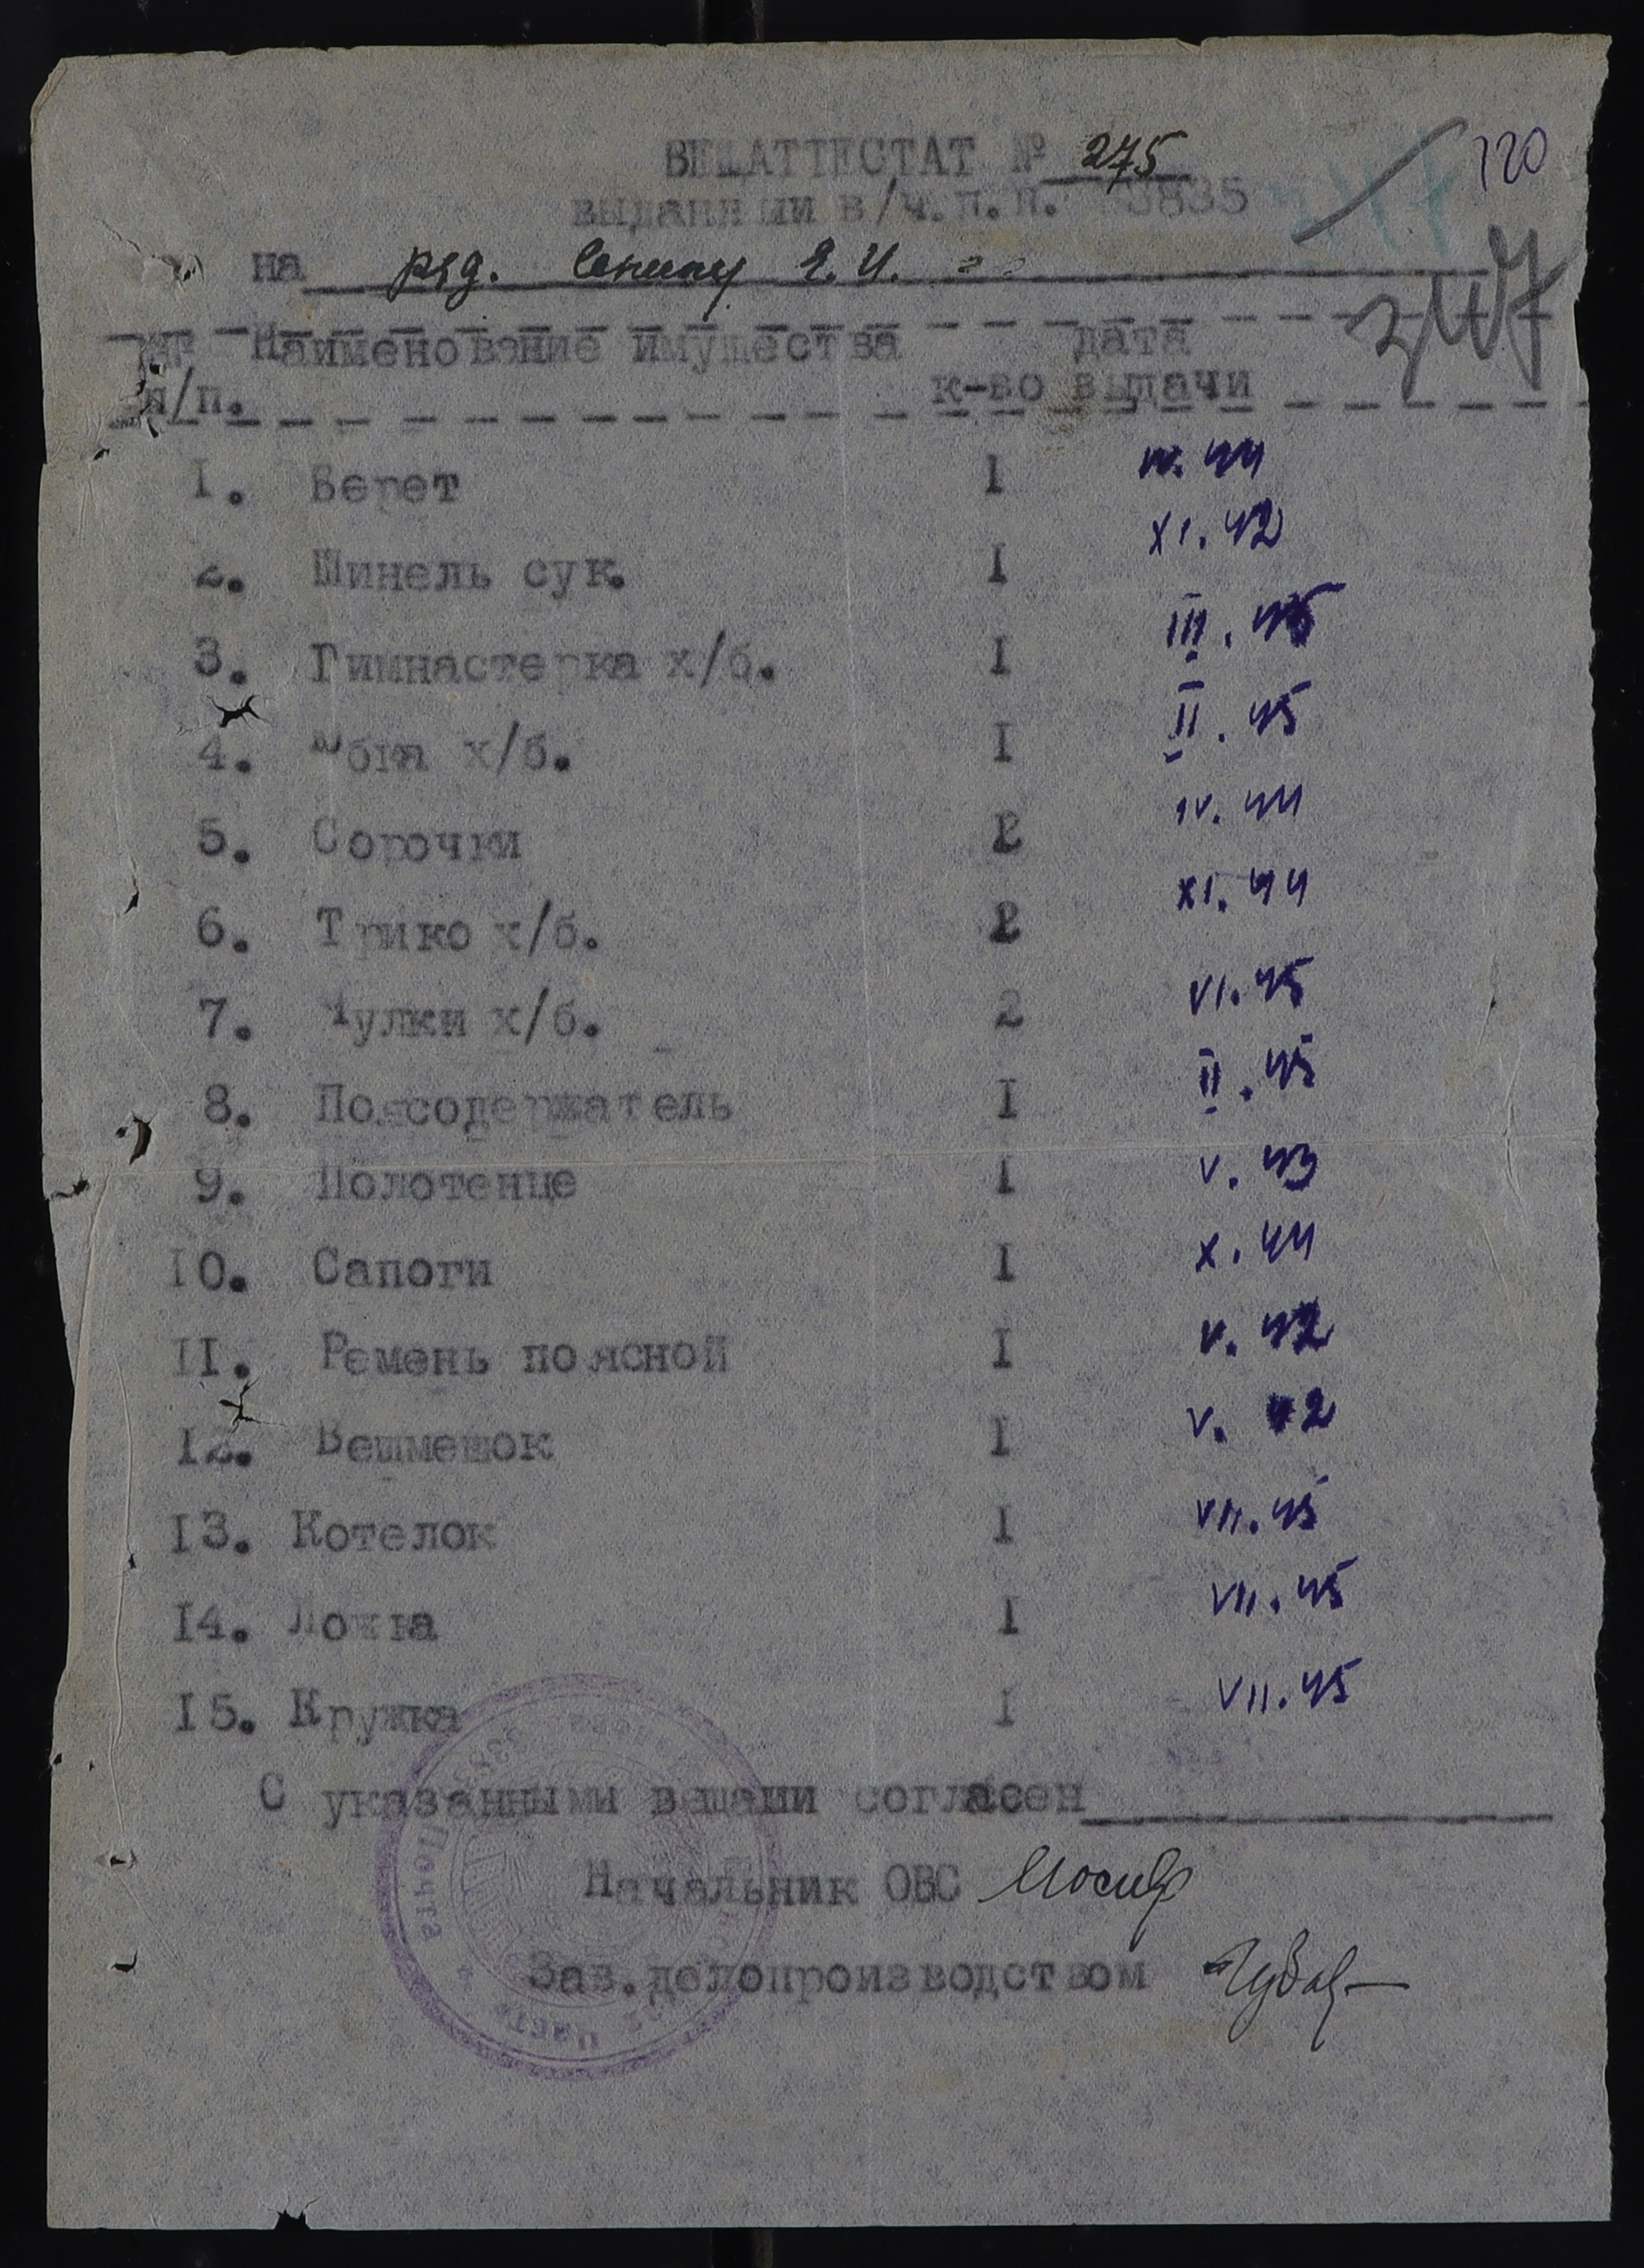 ВЕЩАТТЕСТАТ № 275
120
выданный в/ч.п.п. 33835
347
на ряд. Сенину Е. И.
347
№№ Наименование имущества дата
п/п. к-во выдачи
I. Берет I IV. 44
2. Шинель сук. I XI. 42
3. Гимнастерка х/б. I III. 45
4. Юбка х/б. I II. 45
5. Сорочки 2 IV. 44
6. Трико х/б. 2 XI. 44
7. Чулки х/б. 2 VI. 45
8. Поясодержатель I II. 45
9. Полотенце I V. 43
I0. Сапоги I X. 44
II. Ремень поясной I V. 42
I2. Вешмешок I V. 42
I3. Котелок I VII. 45
I4. Ложка I VII. 45
I5. Кружка I VII. 45
С указанными вещами согласен
Начальник ОВС
Зав.делопроизводством
Почта